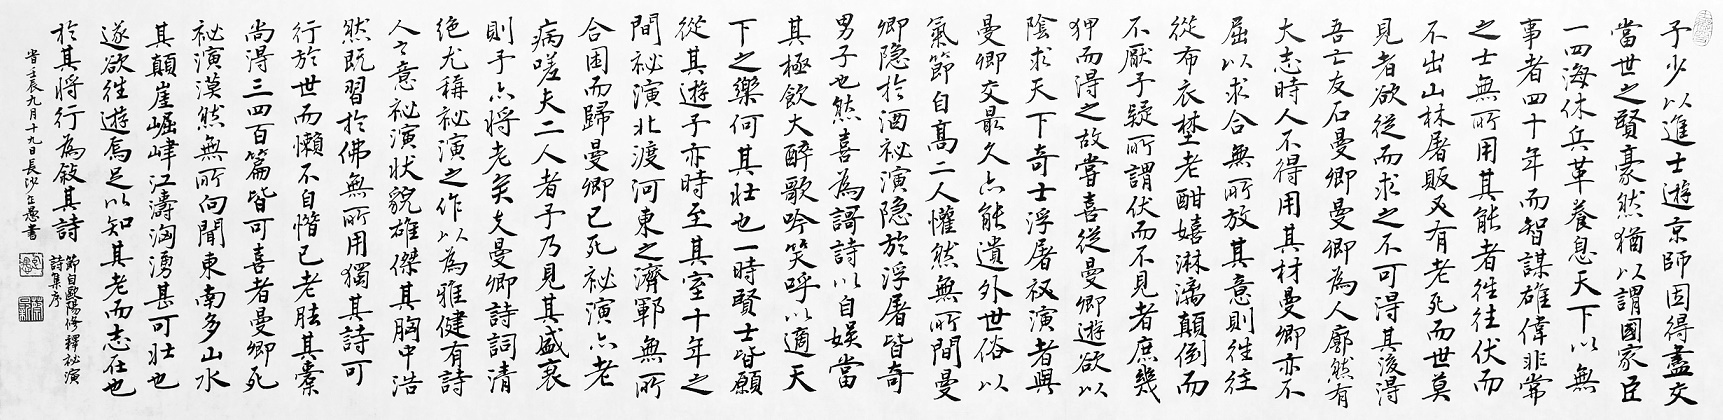 予少以進士遊京師因得盡交
當世之賢豪然猶以謂國家臣
一四海休兵革養息天下以無
事者四十年而智謀雄偉非常
之士無所用其能者往往伏而
不出山林屠販必有老死而世莫
見者欲從而求之不可得其後得
吾亡友石曼卿曼卿為人廓然有
大志時人不得用其材曼卿亦不
屈以求合無所放其意則往往
從布衣埜老酣嬉淋漓顛倒而
不厭予疑所謂伏而不見者庶幾
狎而得之故嘗喜從曼卿遊欲以
陰求天下奇士浮屠祕演者與
曼卿交最久亦能遺外世俗以
氣節自高二人懽然無所間曼
卿隐於酒祕演隐於浮屠皆奇
男子也然喜為謌詩以自娛當
其極飲大醉歌吟笑呼以適天
下之樂何其壯也一時賢士皆願
從其遊予亦時至其室十年之
間祕演北渡河東之濟鄆無所
合困而歸曼卿已死祕演亦老
病嗟夫二人者予乃見其盛衰
則予亦將老矣夫曼卿詩詞清
絕尤稱祕演之作以為雅健有詩
人之意祕演狀貌雄傑其胸中浩
然既習於佛無所用獨其詩可
行於世而懶不自惜已老胠其橐
尚得三四百篇皆可喜者曼卿死
祕演漠然無所向聞東南多山水
其巔崖崛峍江濤洶湧甚可壯也
遂欲往遊焉足以知其老而志在也
於其將行為敍其詩
節自歐陽修釋祕演
詩集序
壬辰九月十九日長沙丘愚書